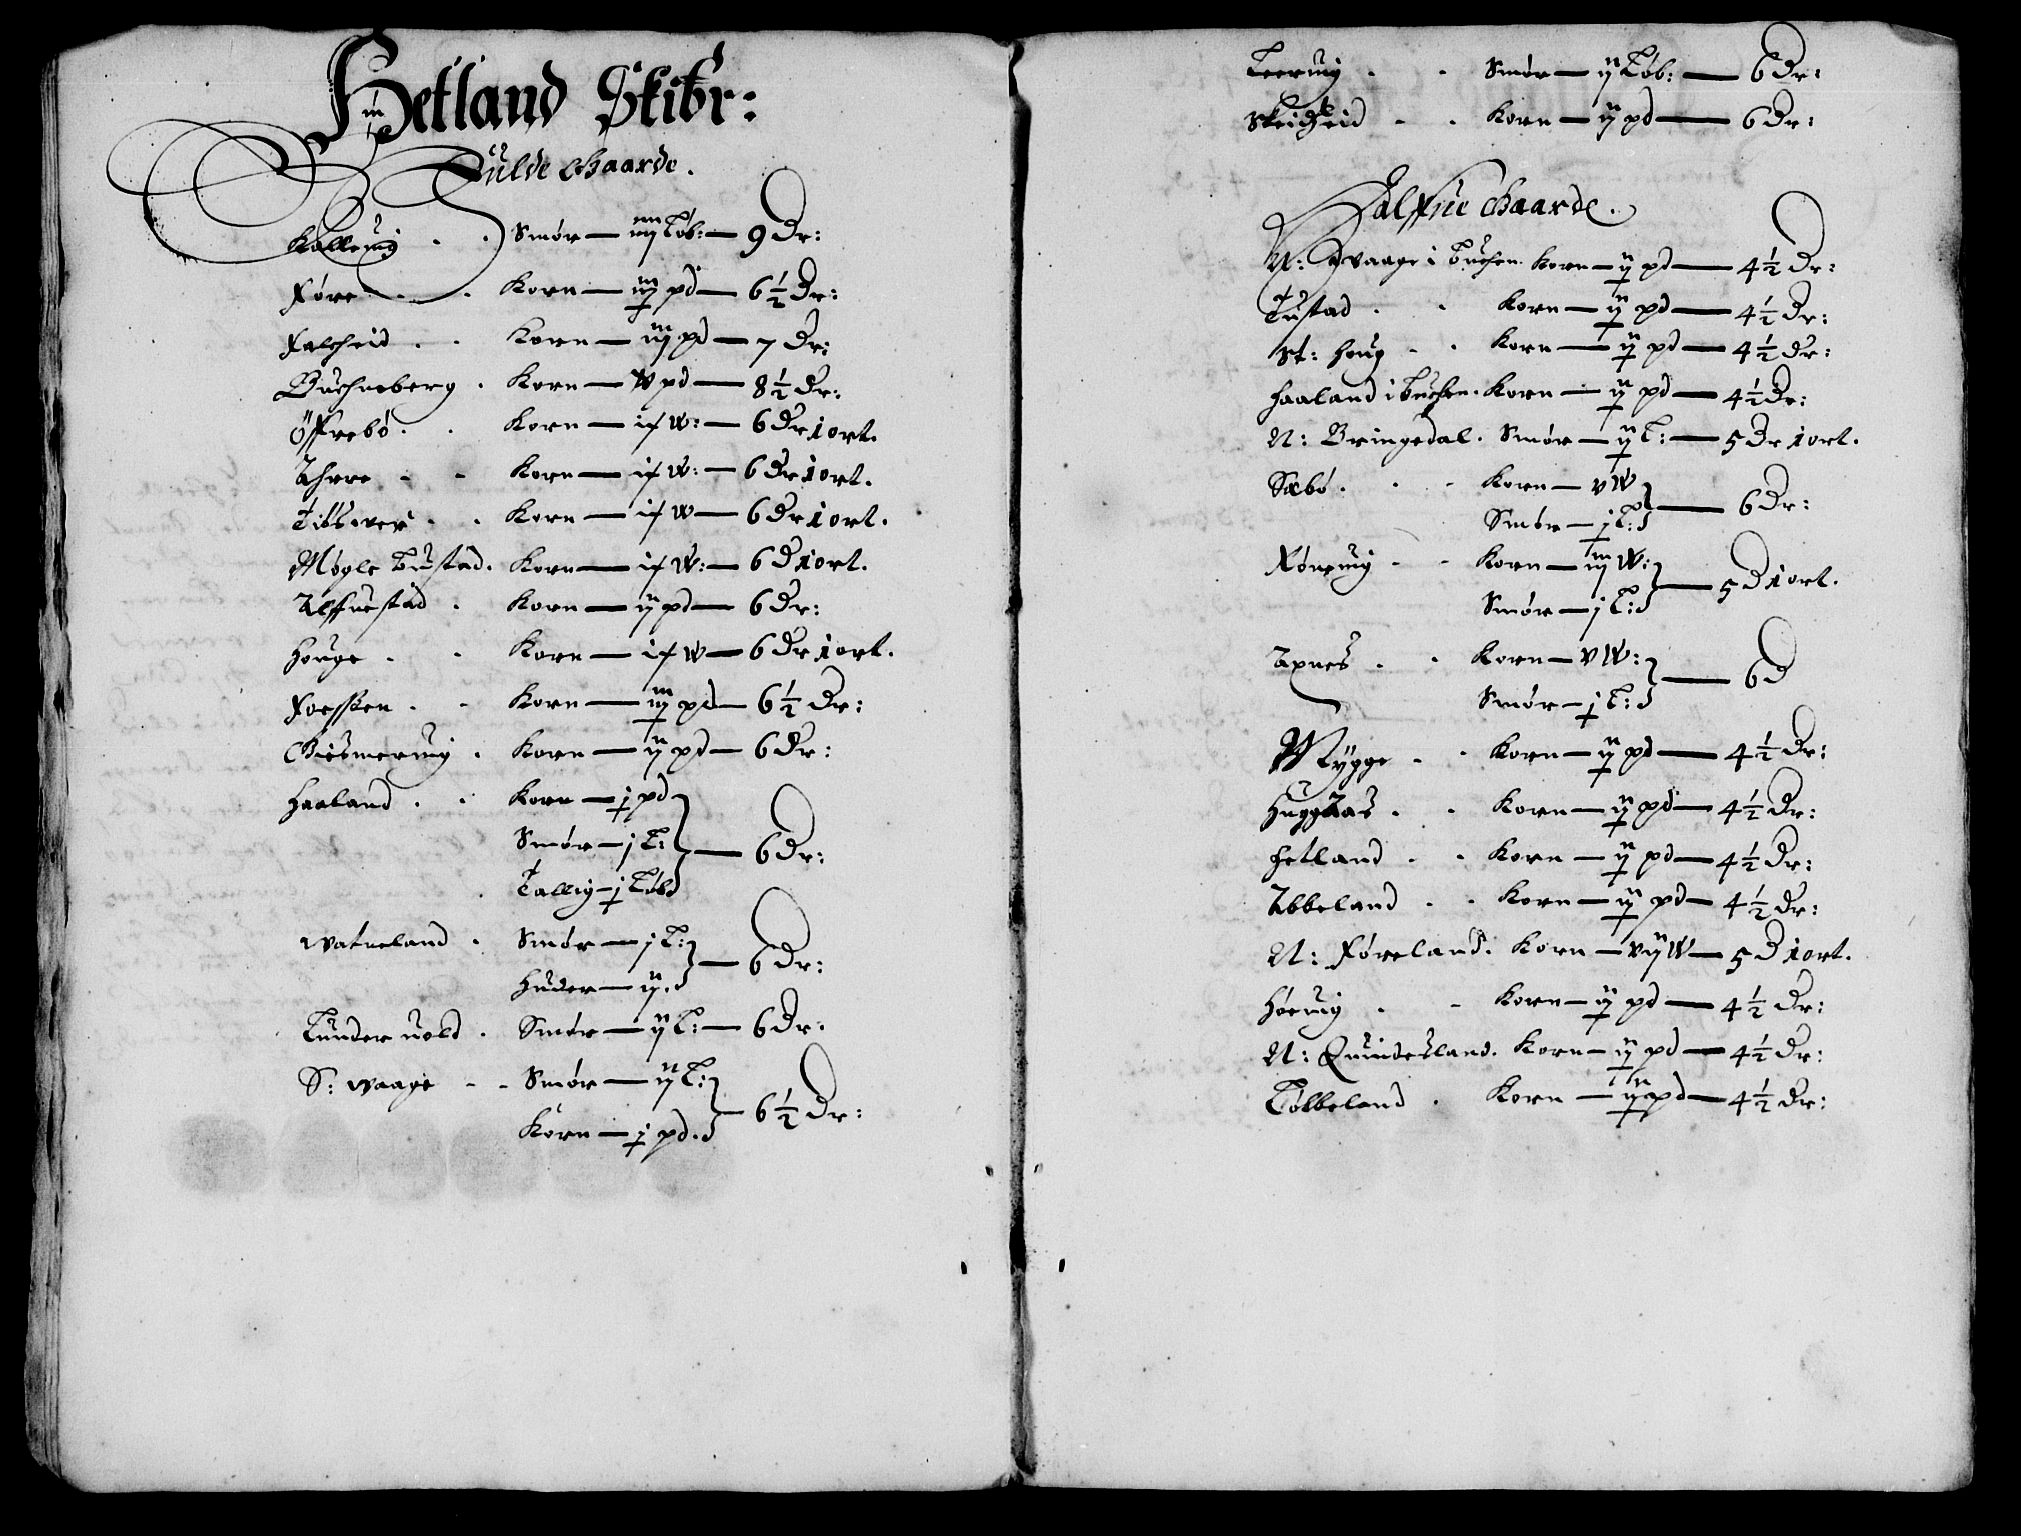 Hetland Skibr:
Fulde Gaarde.
Kalleuig . . Smør — iiij Løb: — 9 Dr:
Føre . . Korn — iij pd — 6½ Dr:
Falcheid . . Korn — iij pd — 7 Dr:
Buchneberg . Korn — iv pd — 8½ Dr:
Øffrebø . . Korn — ix W: — 6 Dr 1 ort.
Ahrre . . Korn — ix W: — 6 Dr 1 ort.
Tisuer . . Korn — ix W — 6 Dr 1 ort.
Møgle Tustad . Korn — ix W: — 6 D 1 ort.
Alffuestad . Korn — iij pd — 6 Dr:
Houge . . Korn — ix W — 6 Dr 1 ort.
Foessen . . Korn — iij pd — 6½ Dr:
Giesmeruig . Korn — ij pd — 6 Dr:
Haaland . . Korn — j pd
Smør — j L:
Tallig — j Løb — 6 Dr:
Watneland . Smør — j L:
Huder — ij — 6 Dr:
Tunder uold . Smør — ij L: — 6 Dr:
S: Waage . . Smør — ij L:
Korn — j pd. — 6½ Dr:
Leeruig . . Smør — ij Løb: — 6 Dr:
Skeidheid . . Korn — ij pd — 6 Dr:
Halffue Gaarde.
N: Waage i Buchen. Korn — ij pd — 4½ Dr:
Tustad . . Korn — ij pd — 4½ Dr:
St: Houg . . Korn — ij pd — 4½ Dr:
Haaland i Buchen . Korn — ij pd — 4½ Dr:
N: Bringedal . Smør — ij L: — 5 Dr 1 ort.
Sæbø . . Korn — v W
Smør — j L: — 6 Dr:
Føneuig . . Korn — iij W:
Smør — j L: — 5 D 1 ort.
Axnes . . Korn — v W:
Smør — j L: — 6 D
Mygge . . Korn — ij pd — 4½ Dr:
Huggaas . . Korn — ij pd — 4½ Dr:
Hetland . . Korn — ij pd — 4½ Dr:
Abbeland . . Korn — ij pd — 4½ Dr:
N: Føreland . Korn — vij W — 5 D 1 ort.
Høeuig . . Korn — ij pd — 4½ Dr:
N: Quindesland . Korn — ij pd — 4½ Dr:
Tølbeland . Korn — ij pd — 4½ Dr: